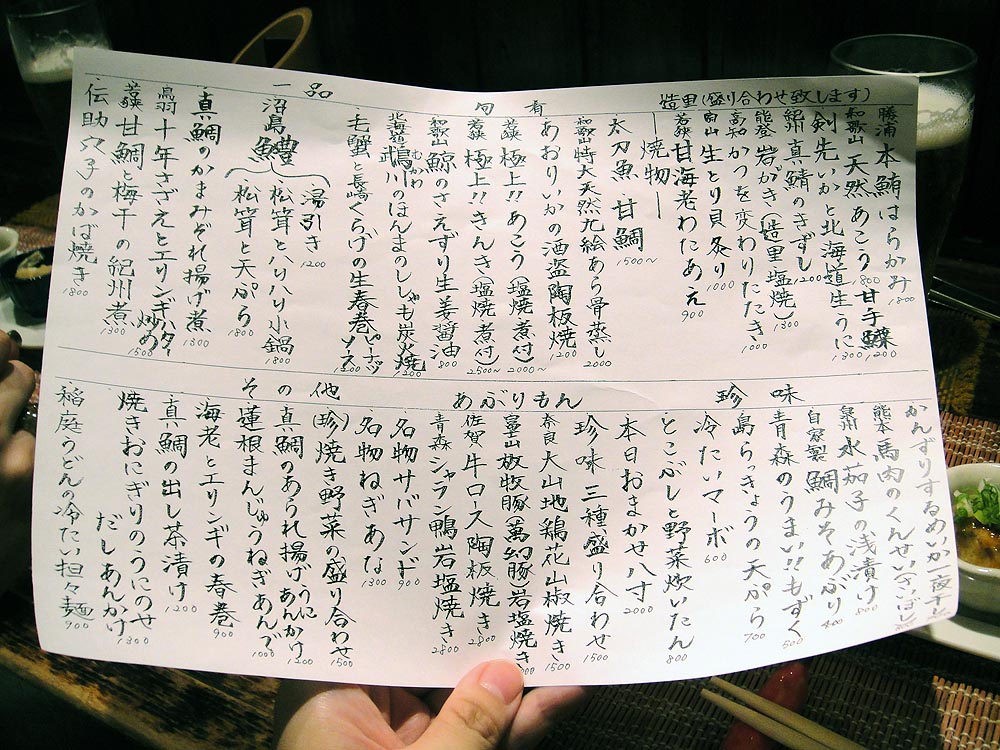 造里(盛り合わせ致します)
勝浦 本鮪はらかみ 1800
和歌山 天然あこう 1800 甘手鰈 1200
剣先いかと北海道生うに 1300
紀州 真鯖のきずし 1200
能登 岩がき(造里塩焼) 1300
高知 かつを変わりたたき 1000
白山 生とり貝炙り 1000
若狭 甘海老わたあえ 900
旬肴
焼物
太刀魚 甘鯛 1500〜
和歌山 特大天然九絵あら骨蒸し 2000
あおりいかの酒盗陶板焼 1200
若狭 極上!!あこう(塩焼 煮付) 2000〜
若狭 極上!!きんき(塩焼 煮付) 2500〜
和歌山 鯨のさえずり生姜醤油 800
北海道 鵡川のほんまのししゃも炭火焼 1200
むかわ
毛蟹と長崎くらげの生春巻 ピーナッツソース 1200
一品
沼島 鱧
湯引き 1200
松茸とハリハリ小鍋 1800
松茸と天ぷら 1800
真鯛のかまみぞれ揚げ煮 1300
鳥羽 十年さざえとエリンギバター炒め 1500
若狭 甘鯛と梅干の紀州煮 1300
伝助穴子のかば焼き 1800
珍味
かんずりするめいか一夜干
熊本 馬肉のくんせい(こぼし)
泉州 水茄子の浅漬け 800
自家製 鯛みそあぶり 400
青森のうまい!!もずく 500
島らっきょうの天ぷら 700
冷たいマーボ 600
とこぶしと野菜炊いたん 800
本日おまかせ八寸 2000
珍味 三種盛り合わせ 1500
あがりもん
奈良 大山地鶏花山椒焼き 1500
富士山 放牧豚(萬幻豚)岩塩焼き
佐賀 牛ロース陶板焼き 2800
青森 シャラン鴨岩塩焼き 2800
名物サバサンド 900
名物ねぎあな 1300
その他
(珍)焼き野菜の盛り合わせ 1500
真鯛のあられ揚げうにあんかけ 1200
蓮根まんじゅうねぎあんで 1000
海老とエリンギの春巻 900
真鯛の出し茶漬け 1200
焼きおにぎりのうにのせ
だしあんかけ 1300
稲庭うどんの冷たい担々麺 900